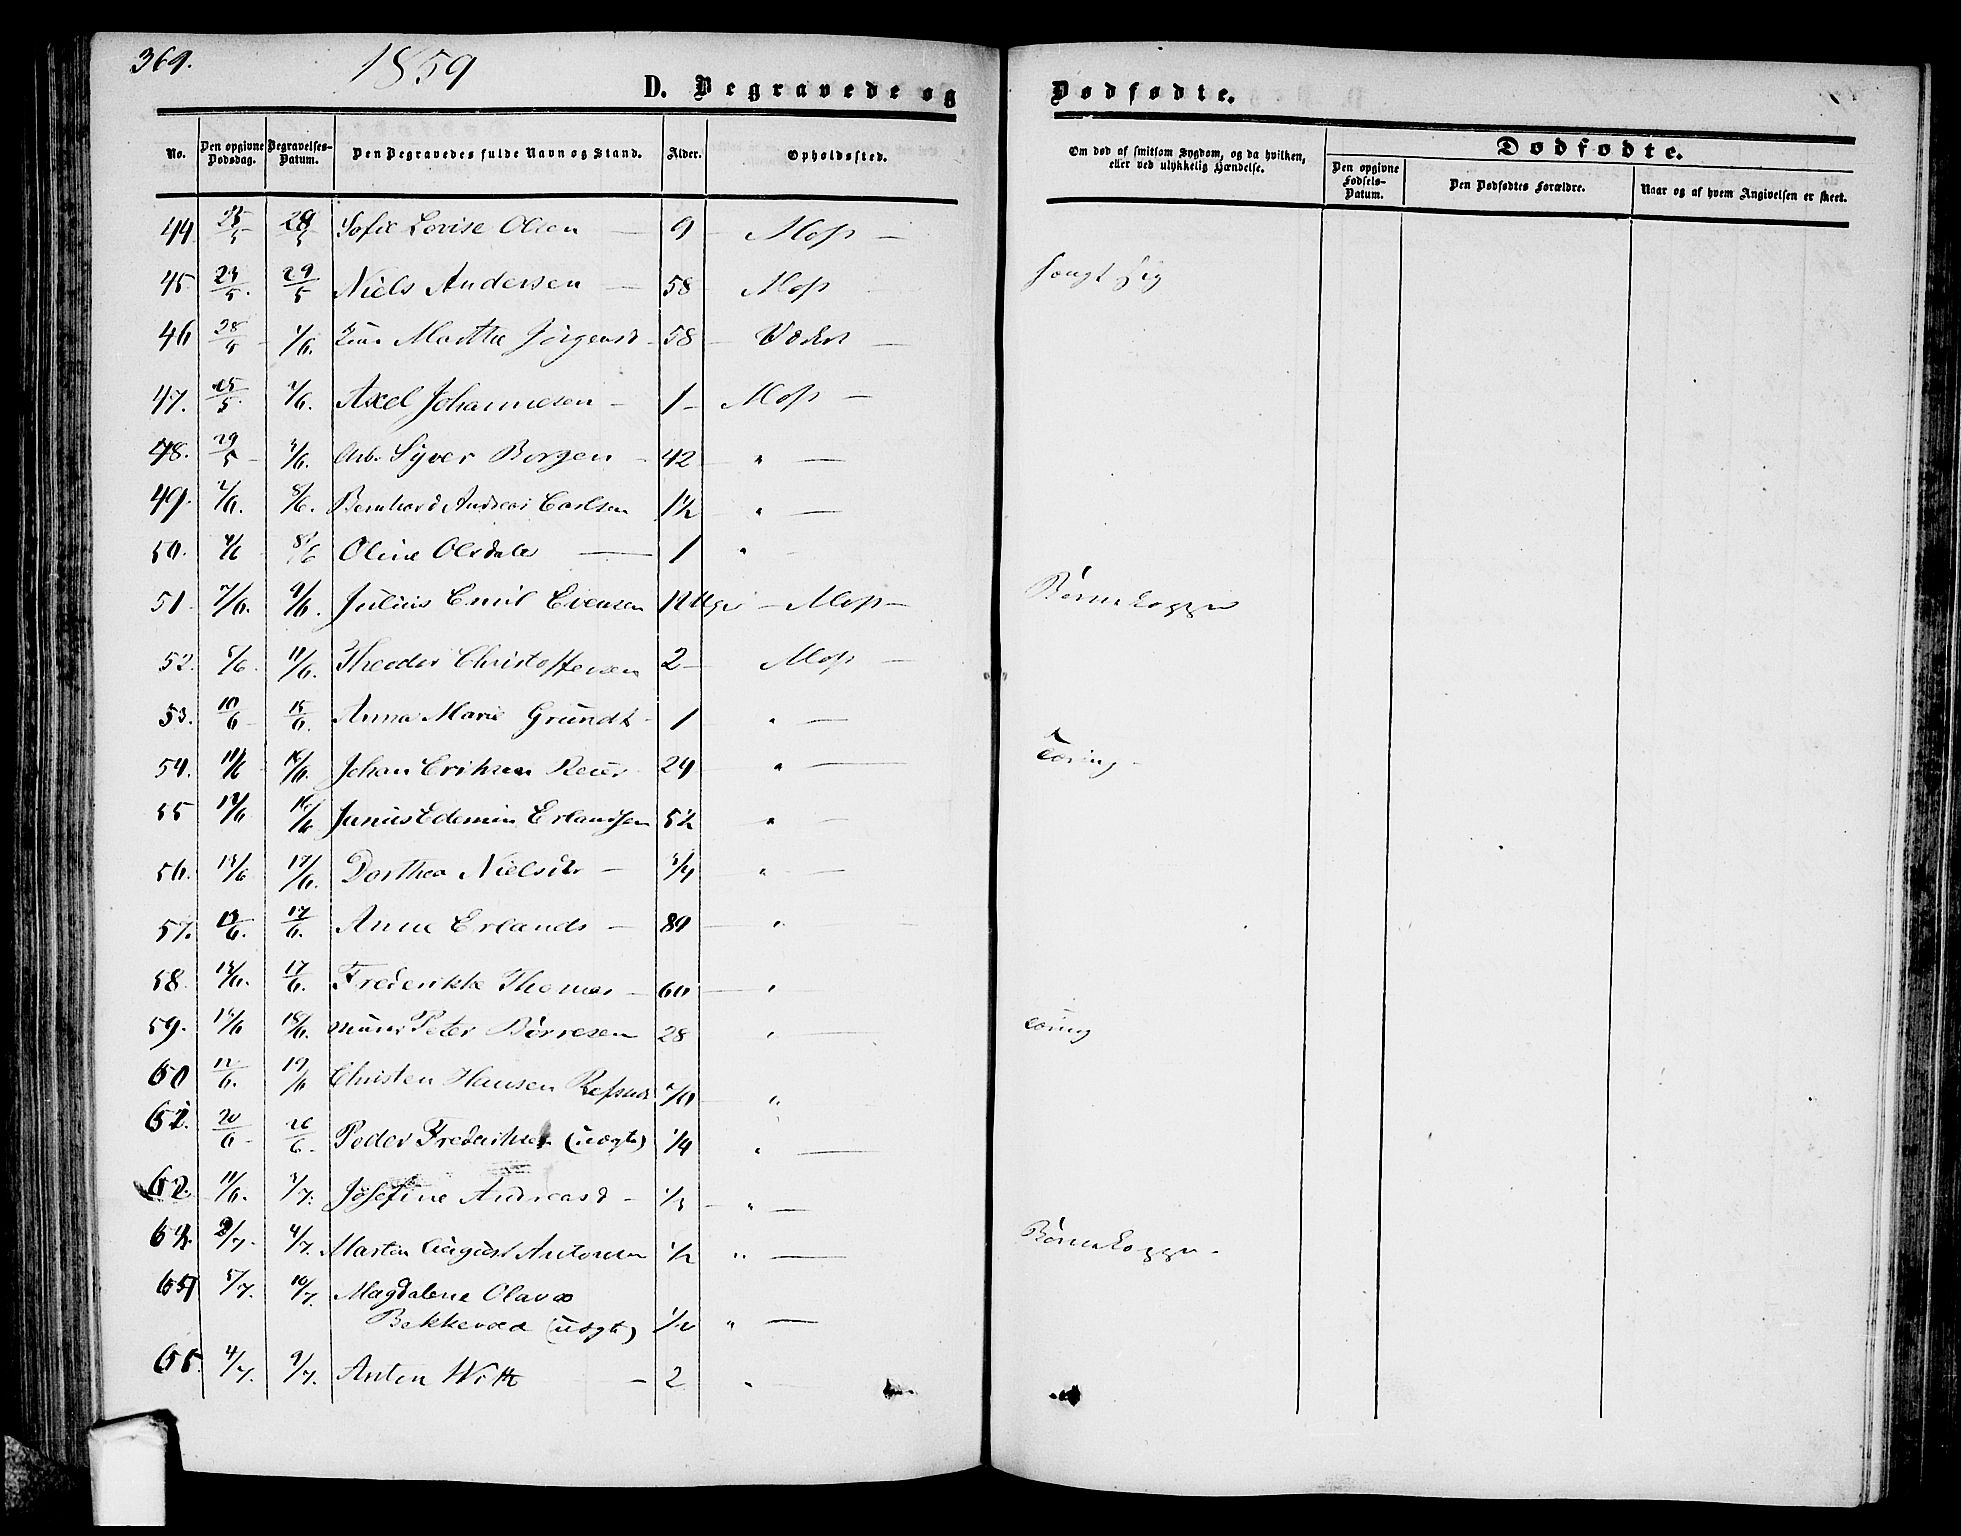 369. 1859
D. Begravede og Dødfødte.
No. Den opgivne Dødsdag. Begravelses-Datum. Den Begravedes fulde Navn og Stand. Alder. Opholdssted. Om død af smitsom Sygdom, og da hvilken, eller ved ulykkelig Hændelse. Dødfødte.
Den opgivne Fødsels-Datum. Den Dødfødtes Forældre. Naar og af hvem Angivelsen er skeet.
44 25/5 28/5 Sofie Lovise Olsen — 9 — Moss —
45 23/5. 29/5 Niels Andersen — 58 Moss
46 28/5 1/6. Martha Jørgensd — 58 —
47. 25/5 1/6. Axel Johannesen — 1 — Moss —
48. 29/5 — 3/6. Arb. Syver Borgen — 42 — " —
49. 2/6. 8/6. Bernhard Andreas Carlsen 1½ " —
50. 4/6 8/6 Oline Olsdatr — 1 " —
51. 7/6. 9/6. Julius Emil Evensen 12 Uger — Moss —
52. 8/6. 11/6. Theodor Christoffersen 2 — Moss —
53. 10/6 — 15/6. Anna Marie Grundt — 1 — " —
54. 11/6 — 16/6. Johan Eriksen — 24 — " —
55 12/6 16/6 Junius Edemin Erlandsen 5½ " —
56. 13/6 17/6. Dorthea Nielsdtr — 3/4 " —
57. 13/6. 17/6. Anne Erlands — " —
58. 13/6. 17/6. Frederikke Thomas — 60 — "
59. 14/6 18/6. Peter Børresen 28 "
60 12/6. 19/6 Christen Hansen "
61. 20/6 — 26/6. Peder Frederiksen (uægte) 1/4 " —
62. 11/6. 3/7. Josefine Andreasd — — " —
63. 2/7. 4/7. Martin August Antonsen 1/2 " —
5/7. 10/7. Magdalene Olava
Bekkevold (uægte) " —
65. 4/7. 9/7. Anton Witt — 2 "